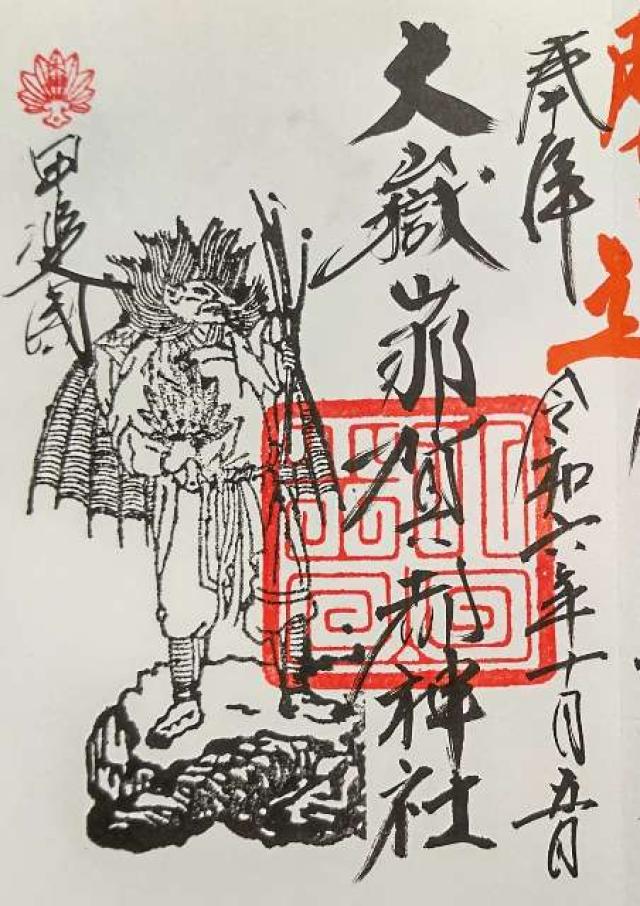 奉拝
令和六年十月五日
大嶽山那賀都神社
甲斐国